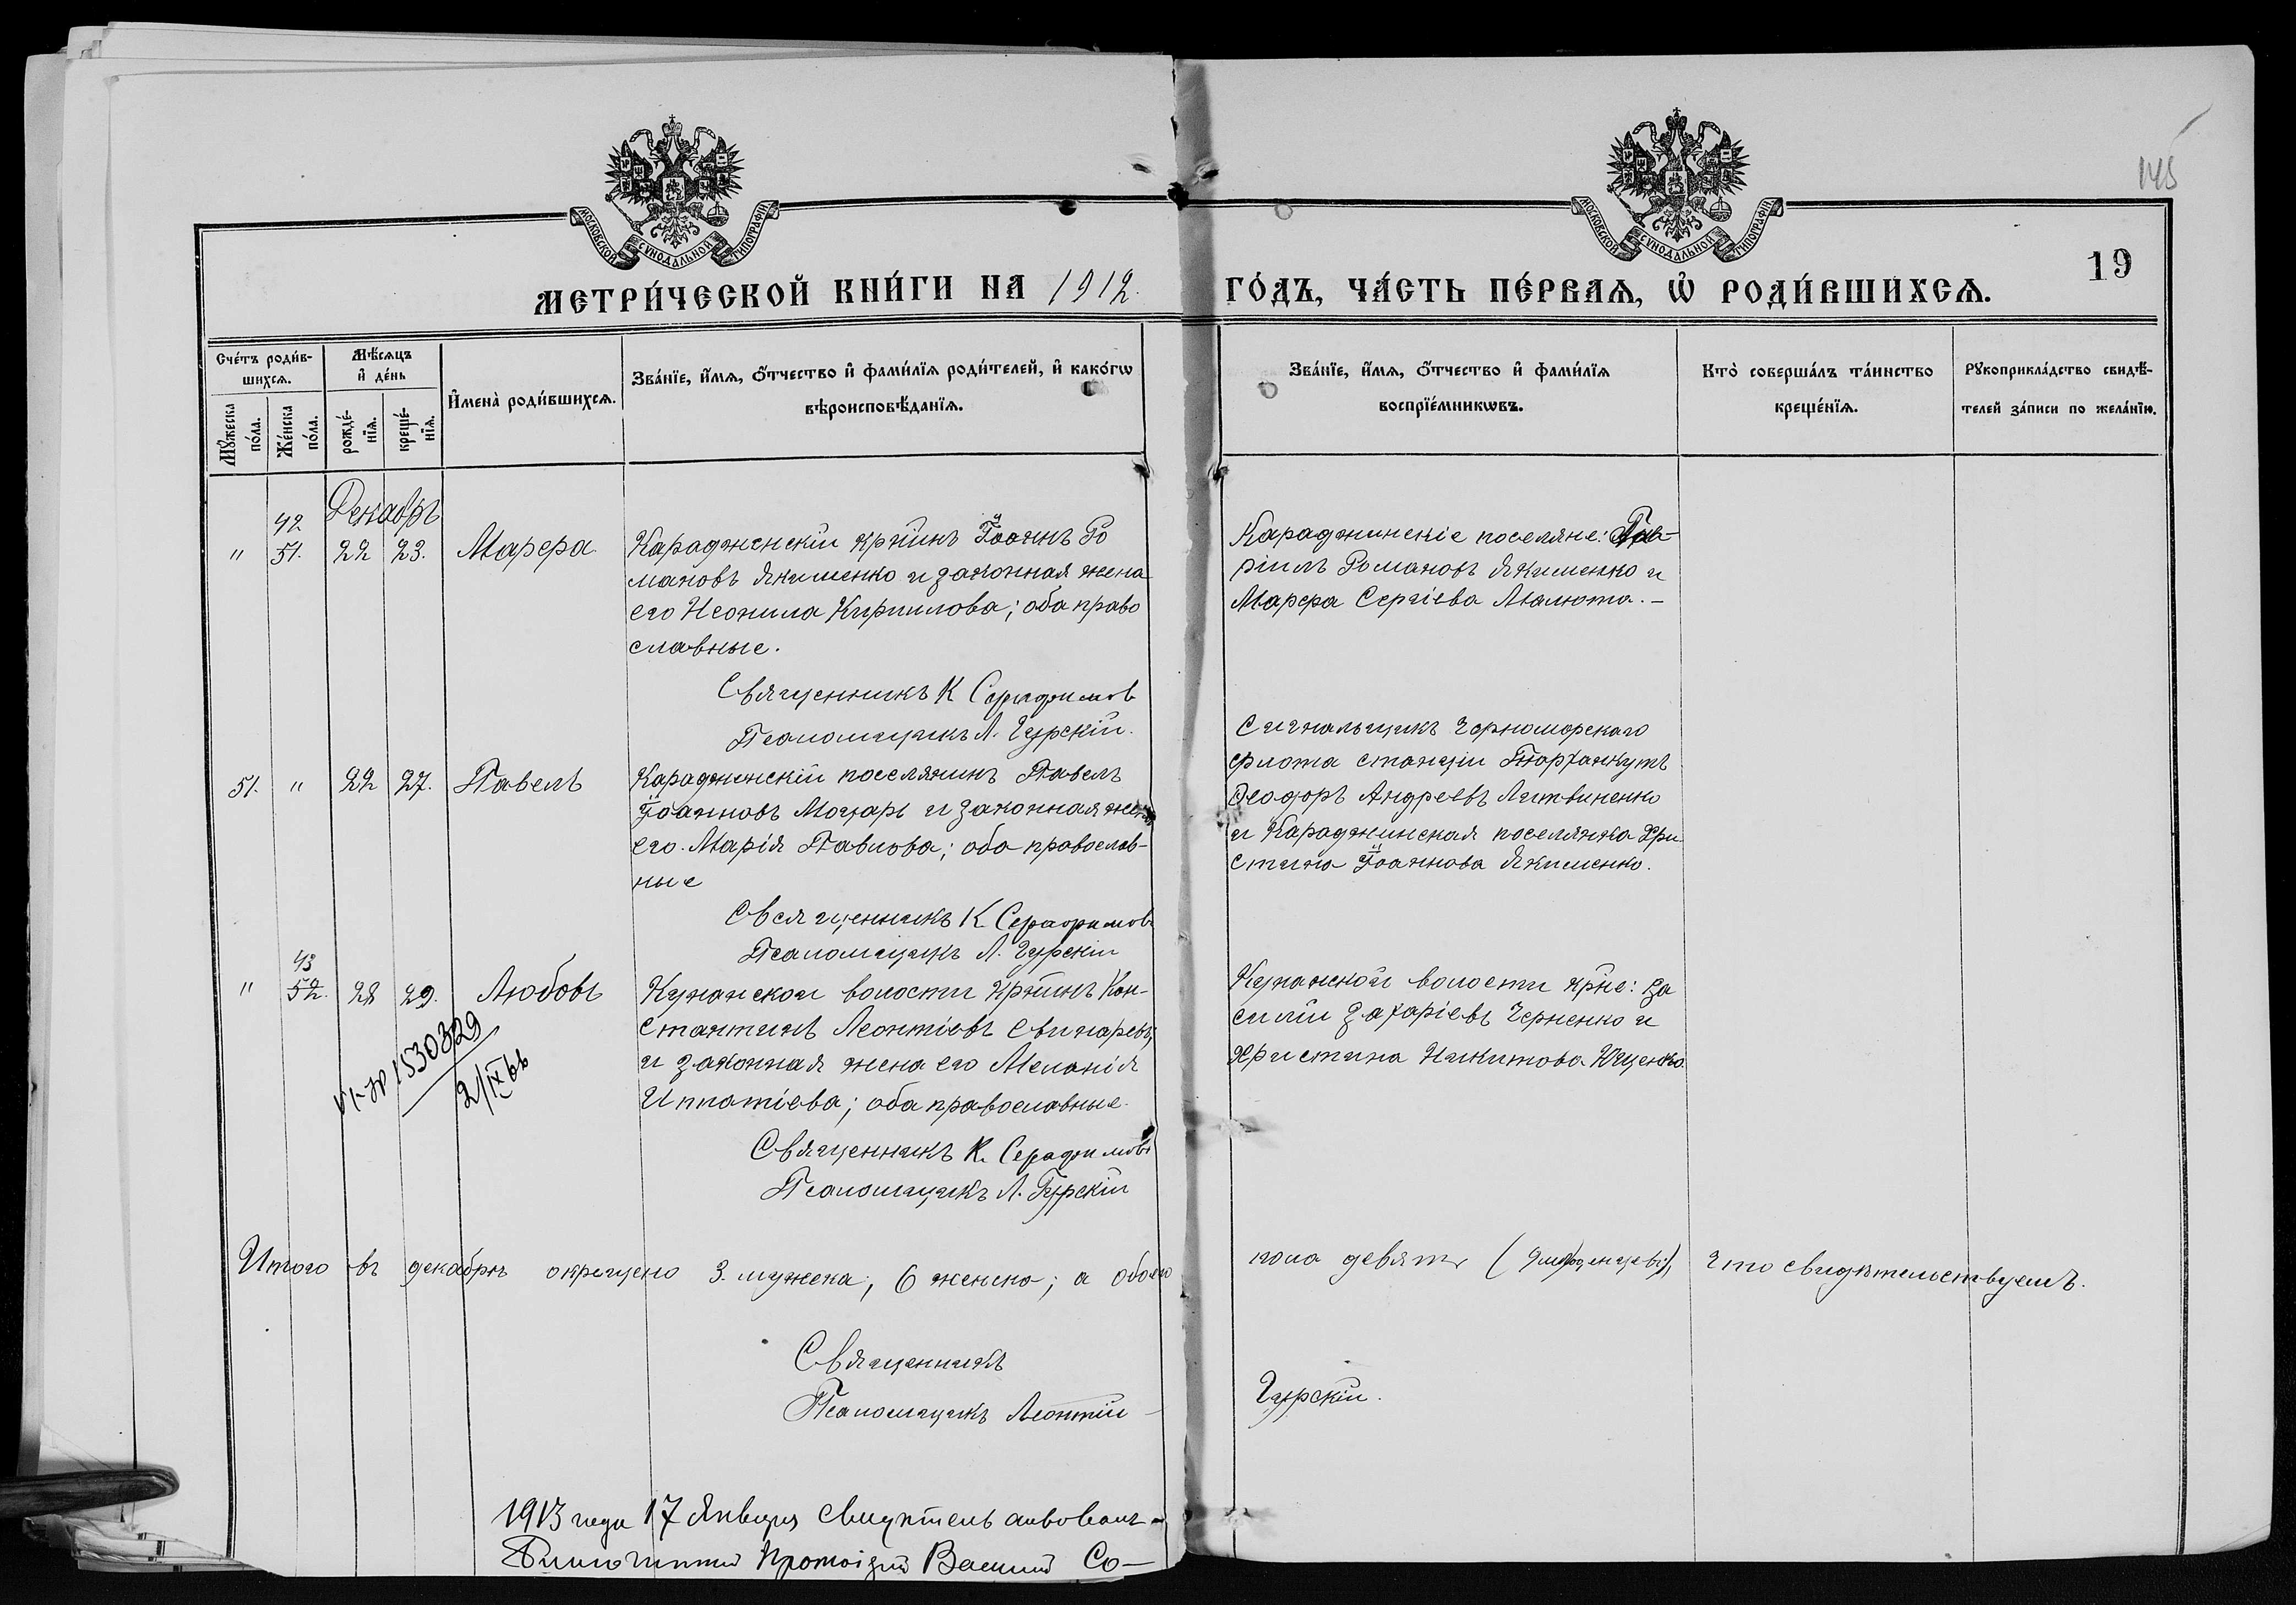 145
19
МОСКОВСКОЙ СѴНОДАЛЬНОЙ ТИПОГРАФІИ
МОСКОВСКОЙ СѴНОДАЛЬНОЙ ТИПОГРАФІИ
МЕТРИ́ЧЕСКОЙ КНИ́ГИ НА 1912. ГО́ДЪ, ЧА́СТЬ ПЕ́РВАѦ, Ѽ РОДИ́ВШИХСѦ.
Сче́тъ роди́в-
шихсѧ.
Мꙋ́жеска по́ла.
Же́нска по́ла.
Мѣ́сѧцъ
и҆ де́нь
рожде́-
нїѧ.
креще́-
нїѧ.
И҆мена̀ роди́вшихсѧ.
Зва́нїе, и҆́мѧ, ѻ҆́тчество и҆ фами́лїѧ роди́телей, и҆ како́гѡ
вѣроисповѣ́данїѧ.
Зва́нїе, и҆́мѧ, ѻ҆́тчество и҆ фами́лїѧ
воспрїе́мникѡвъ.
Кто̀ соверша́лъ та́инство
креще́нїѧ.
Рꙋкоприкла́дство свидѣ́-
телей за́писи по жела́нїю.
Декабрь
42
" 51. 22 23. Марѳа
Караджинскій крнинъ Іоаннъ Ро
мановъ Якименко и законная жена
его Неонила Кириллова; оба право
славные.
Священникъ К Серафимов
Псаломщикъ Л. Гурскій.
Караджинскіе поселяне: Гав-
ріилъ Романовъ Якименко и
Марѳа Сергіева Малюта. –
51. " 22 27. Павелъ
Караджинскій поселянинъ Павелъ
Іоанновъ Моцарь и законная жена
его Марія Павлова; оба православ-
ные
Священникъ К Серафимовъ
Псаломщикъ Л. Гурскій
Сигнальщикъ Черноморскаго
флота станціи Тюрханкутъ
Ѳеодоръ Андреевъ Литвиненко
и Караджинская поселянка Хри
стина Іоаннова Якименко.
43
" 52. 28 29. Любовь
Кунанской волости крнинъ Кон-
стантинъ Леонтіевъ Свинаревъ,
и законная жена его Меланія
Ипатіева; оба православные.
Священникъ К. Серафимовъ
Псаломщикъ Л. Гурскій
Кунанской волости крне: Ва
силій Захаріевъ Черненко и
Христина Никитова Ющенко.
1530329
2/IX 66
Итого въ декабрѣ окрещено 3. мужеска, 6 женска; а обоего пола девять (9 младенцевъ), что свидѣтельствуемъ.
Священникъ
Псаломщикъ Леонтій – Гурскій.
1913 года 17 Января свидѣтельствовалъ
Благочинный Протоіерей Василий Со–